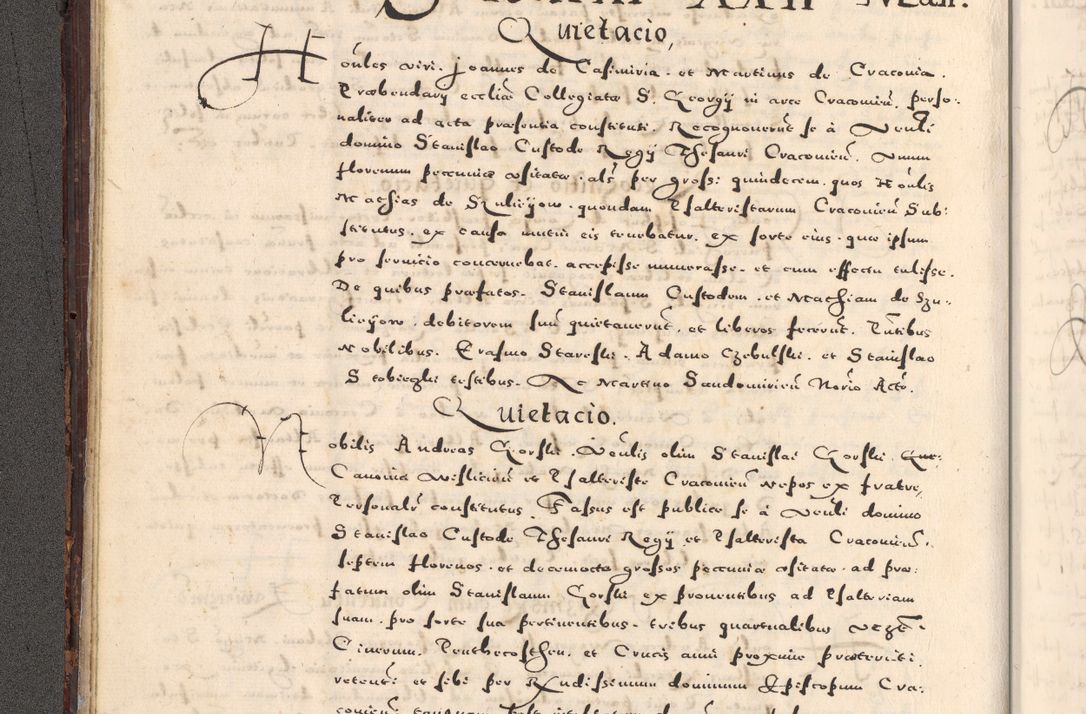 Quietacio,
Honles viri Joannes de Casimiria et Martinus de Cracouia.
Præbendary eccliæ Collegiatæ S. Georgÿ in arce Cracouien. perso:
naliter ad acta præsentia constituti. Recognouerunt se à Venli
domino Stanislao Custode Regÿ Thesauri Cracouien. Vnum
florenum pecuniæ vsitatæ als per grossi quindecem. quos Honlis
Mathias de Szulieÿow quondam Psalteristarum Cracouien Sub:
stitutus. ex causa mutui eis tenebatur. ex sorte eius quæ ipsum
pro seruicio concernebat. accepisse numerasse et cum effectu tulisse.
De quibus præfatos Stanislaum Custodem et Mathiam de Szu:
lieÿow debitorem suum quietauerunt. et liberos fecerunt. Pntibus
Nobilibus. Erasmo Stareski. Adamo Czebulski. et Stanislao
Stobieczki testibus. Ac Martino Sandomirien Norio Actor.
Quietacio.
Nobilis Andreas Gorski. Venlis olim Stanislai Gorski
Canonici Vislicien et Psalteriste Cracouien Nepos ex fratre,
Personalr constitutus. Fassus est publice se à Venli domino
Stanislao Custode Thesauri Regÿ et Psalterista Cracouien.
septem florenos. et decemocto grossos pecuniæ vsitatæ ad præ:
fatum olim Stanislaum Gorski ex prouentibus ad Psalteriam
suam. pro sorte sua pertinentibus. tribus quartualibus
Cinerum. Penthecosthen. et Crucis anni proxime præteriti.
retenti et sibi per Rndissimum dominum Episcopum Cra: